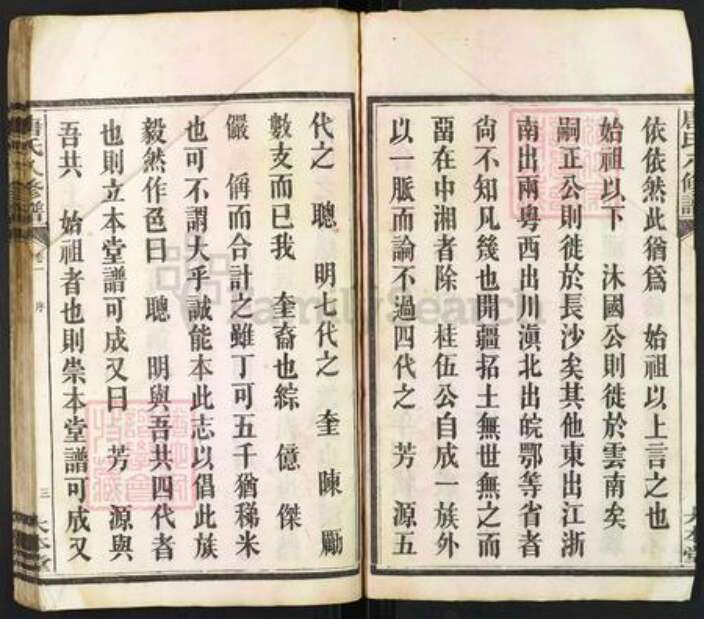 依依然此猶爲　始祖以上言之也
始祖以下　沐國公則徙於雲南矣
嗣正公則徙於長沙矣其他東出江浙
南出兩粵西出川滇北出皖鄂等省者
尙不知凡幾也開疆拓土無世無之而
畱在中湘者除　桂伍公自成一族外
以一脈而論不過四代之　芳　源五
代之　聰　明七代之　奎　暕　勵
數支而已我　奎裔也綜　億　傑
儼　偁而合計之雖丁可五千猶稊米
也可不謂大乎誠能本此志以倡此族
毅然作色曰　聰　明與吾共四代者
也則立本堂譜可成又曰　芳　源與
吾共　始祖者也則崇本堂譜可成又
唐氏八修譜
卷一　序
三
大本堂
FamilySearch